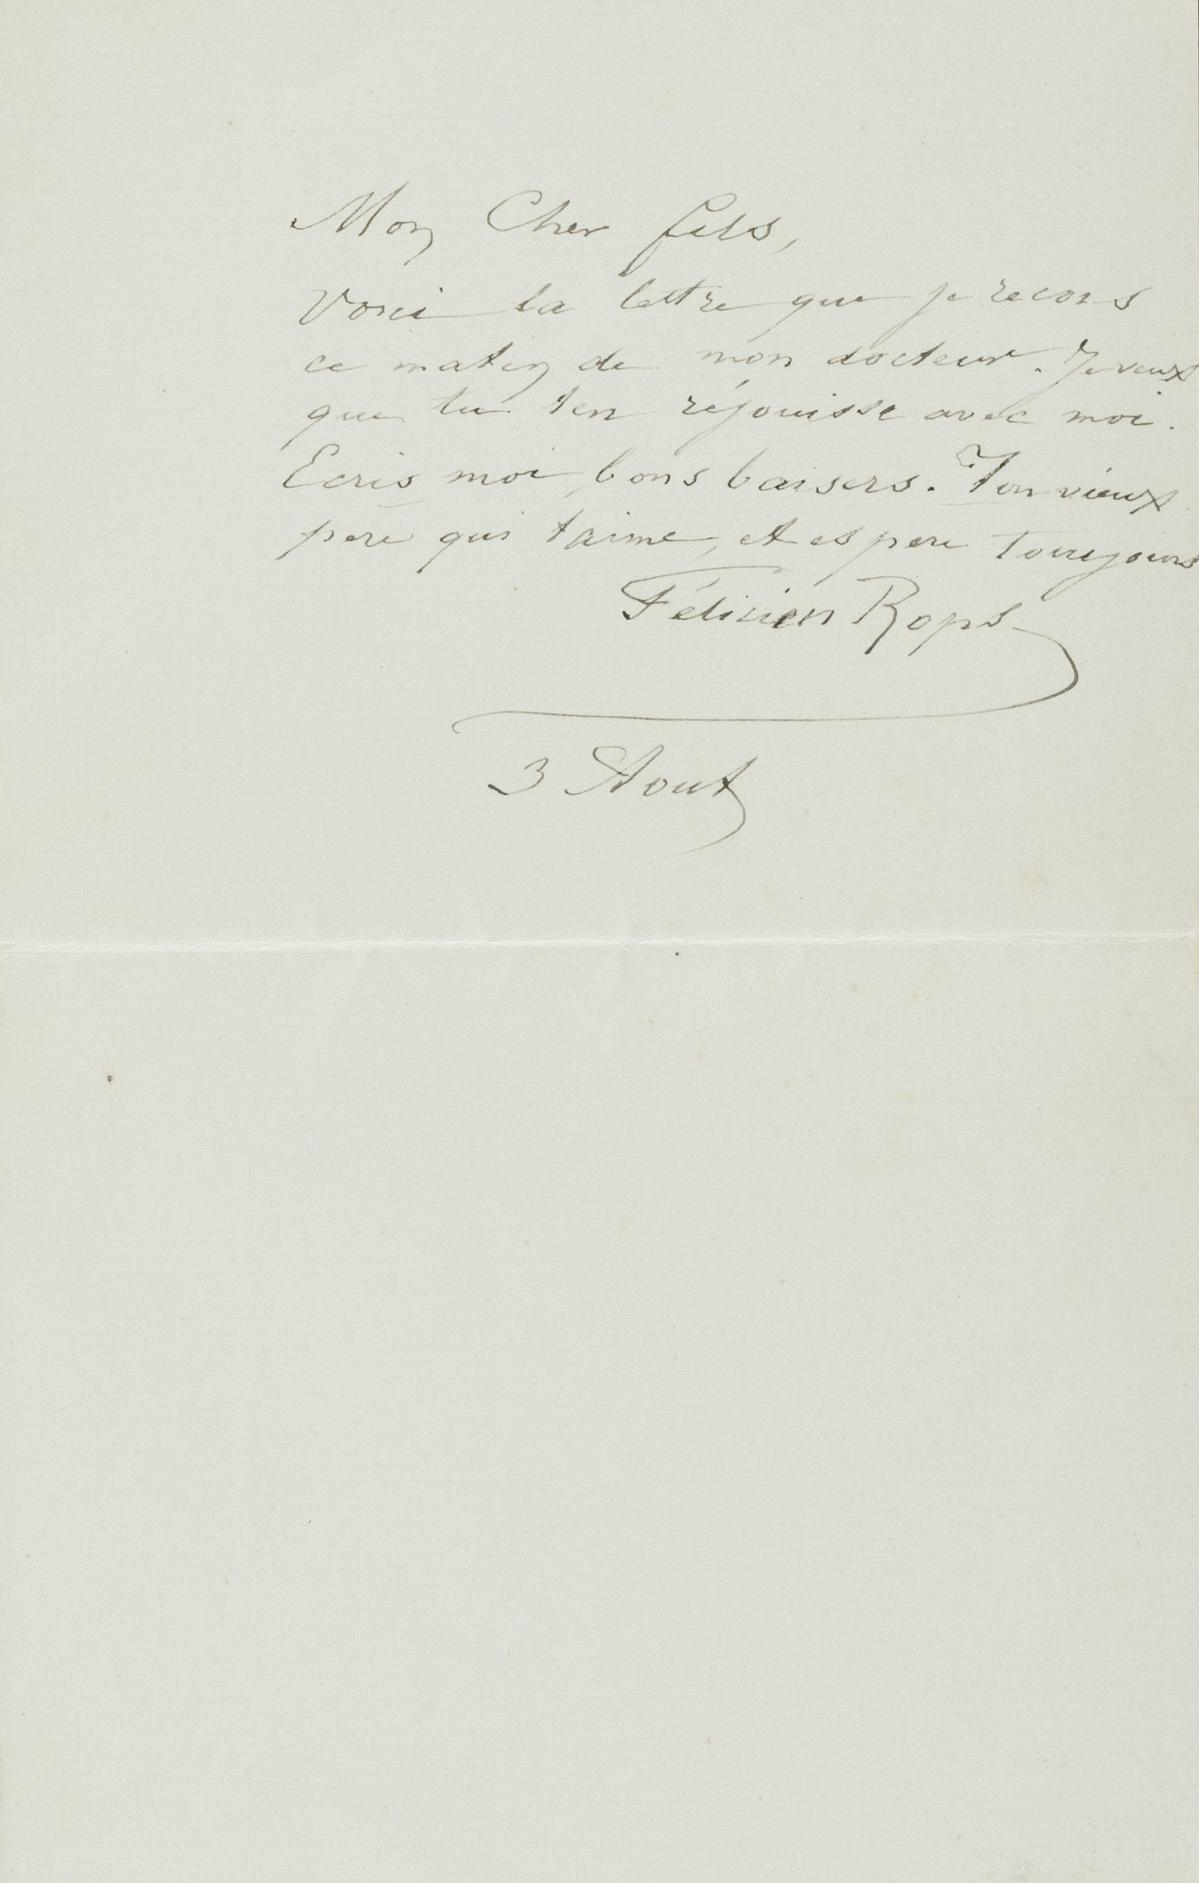 Mon Cher fils,
Voici la lettre que je recois
ce matin de mon docteur. Je veux
que tu ten réjouisse avec moi.
Ecris moi, bons baisers. Ton vieux
pere qui taime, et espere toujours
Félicien Rops
3 Aout